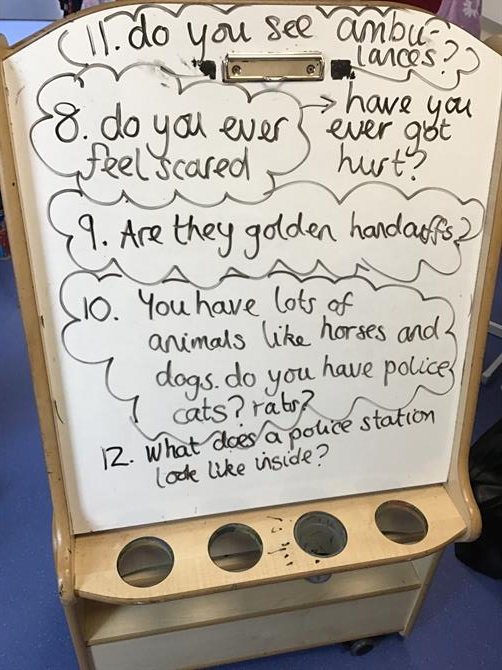 11. do you see ambu-
lances?
8. do you ever
feel scared
→ have you
ever got
hurt?
9. Are they golden handcuffs?
10. You have lots of
animals like horses and
dogs. do you have police
cats? rats?
12. What does a police station
look like inside?